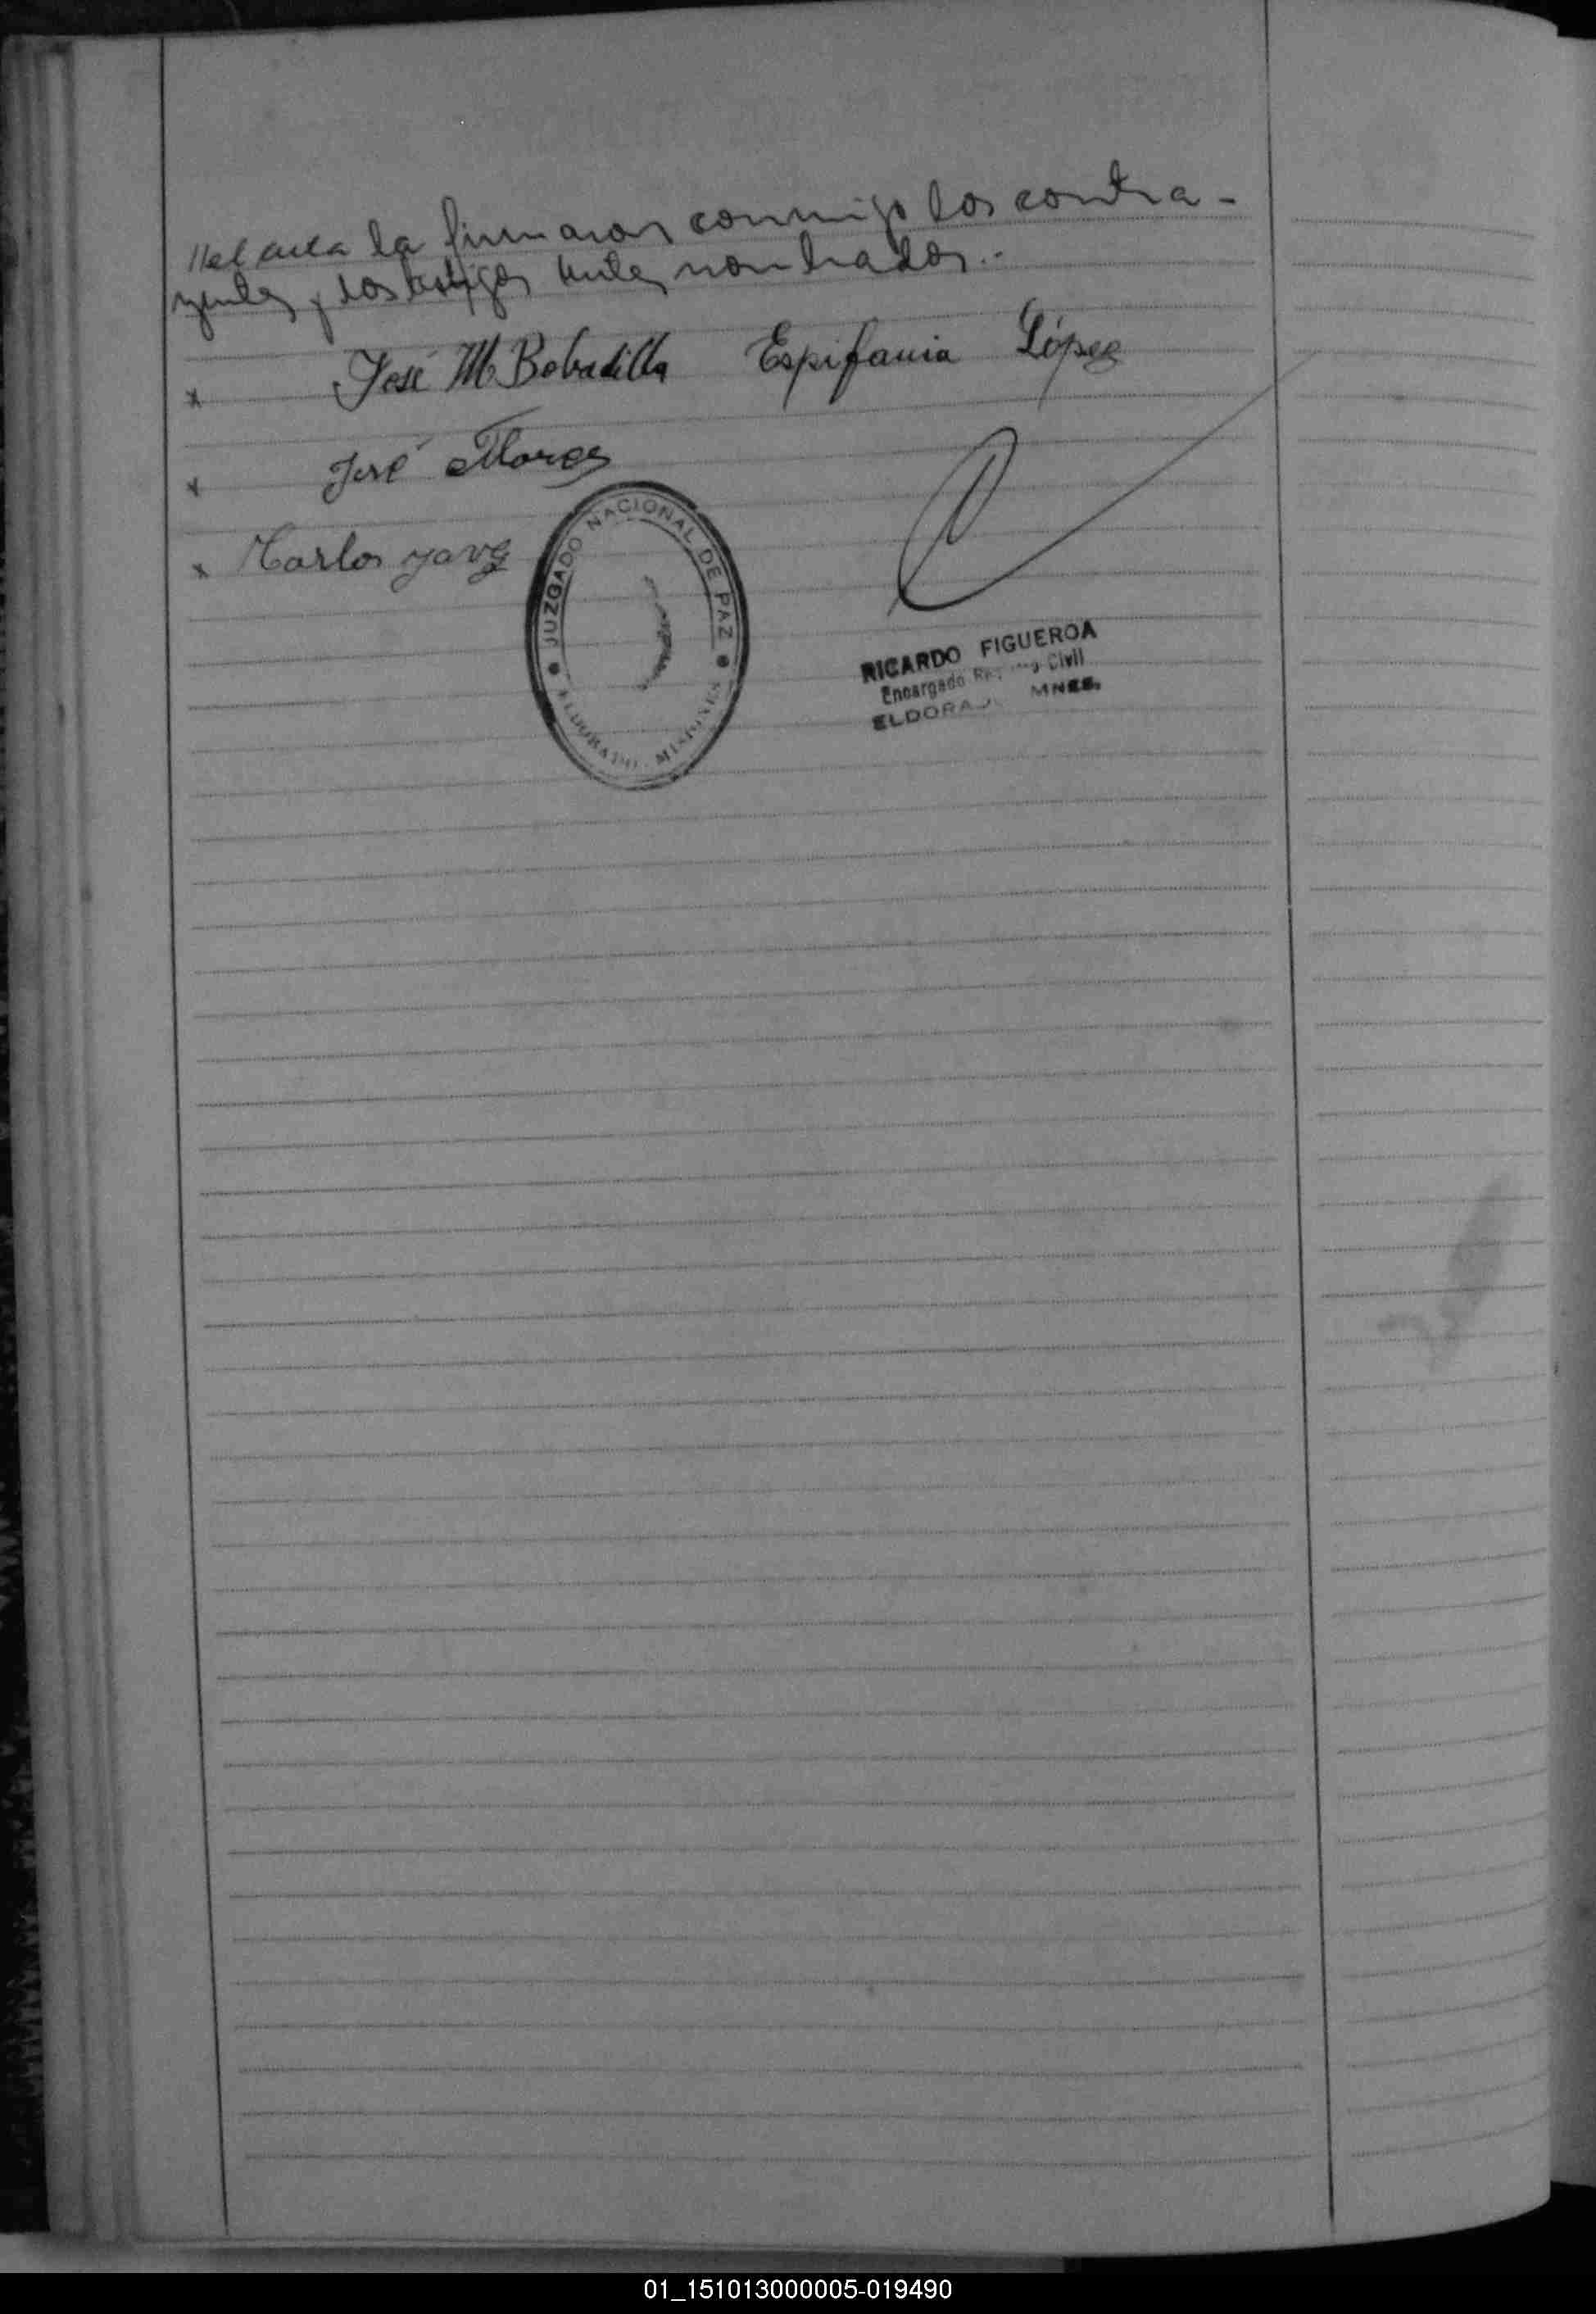 del acta la firmaron conmigo los contra-
yentes y los testigos antes nombrados.-
x José M Bobadilla Espifania López
x José Flores
x Carlos
JUZGADO NACIONAL DE PAZ
ELDORADO - MISIONES
RICARDO FIGUEROA
Encargado Registro Civil
ELDORADO MNES.
01_151013000005-019490